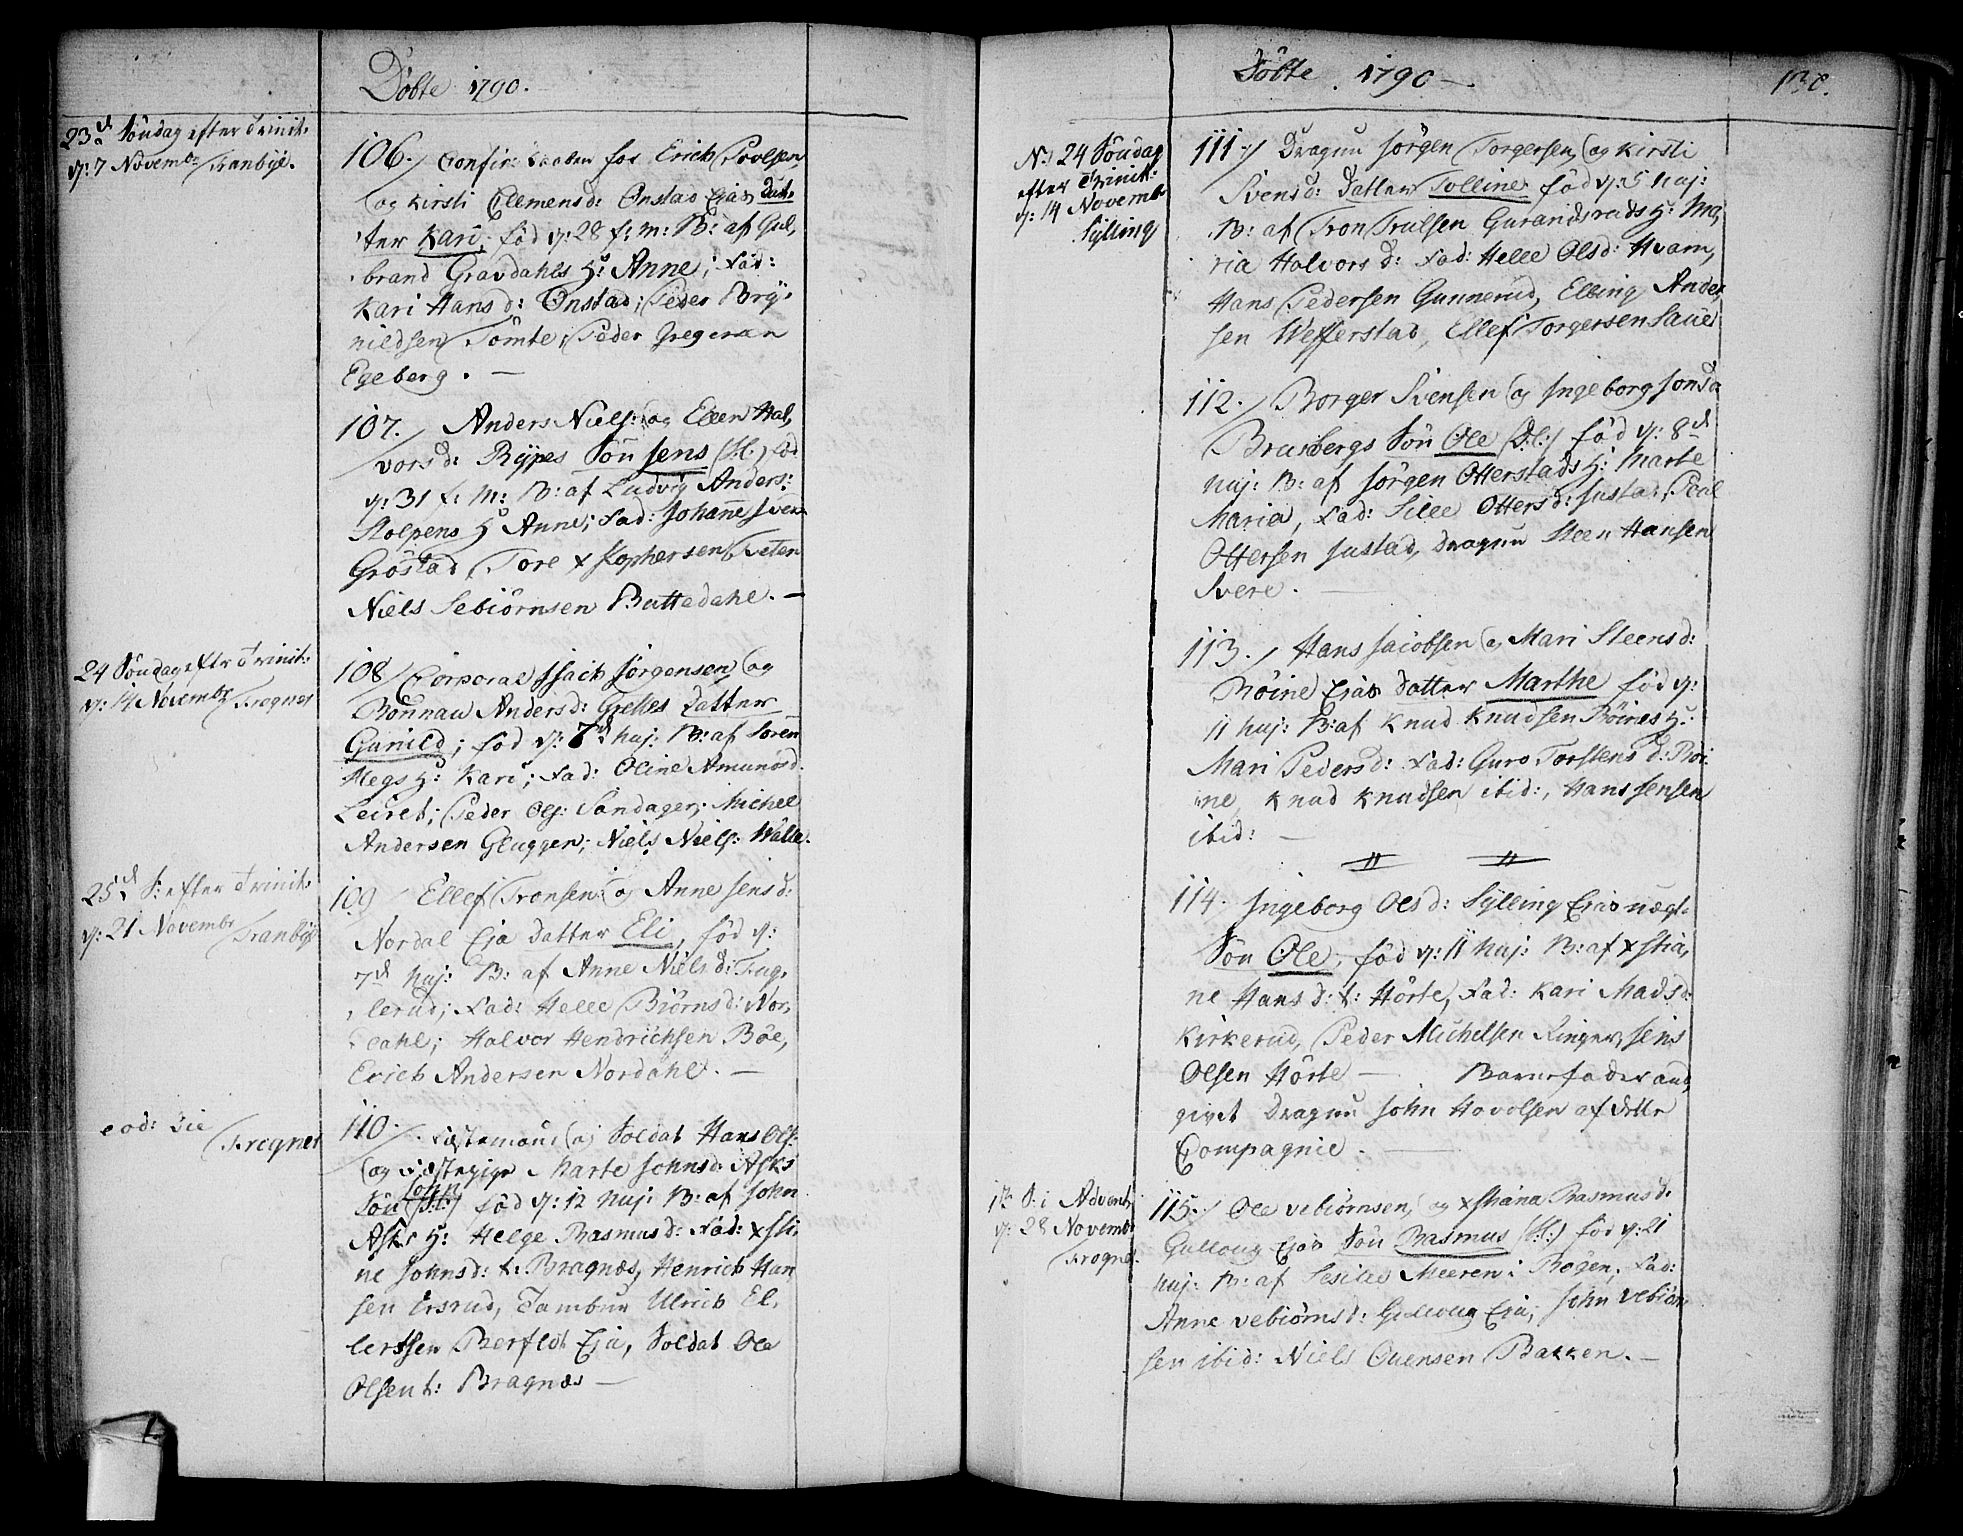 Döbte 1790.
23d Söndag efter Trinit:
d: 7 Novembr Tranbÿe.
106./ Confir: Daaben for Erich Povelsen
og Kirsti Clemensd: Onstad Ejas Dat-
ter Kari, föd d: 28 f: m: B: af Gul,
brand Gravdahls H: Anne; Fad:
Kari Hansd: Onstad; Peder Brÿ-
nildsen Tömte; Peder Gregersen
Egeberg. —
107. / Anders Niels: og Ellen Hal,
vorsd: Rÿpes Sön Jens (S:l:) föd
d: 31 f: m: B: af Ludvig Anders:
Stolpens H: Anne; Fad: Johanne Svens
Gröstad, Tore Xstophersen Tveten
Niels Sebiörnsen Buttedahl. —
24 Söndag efter Trinit:
d: 14 Novembr Frogner
108/ Corporal Isach Jörgensen og
Rönnau Andersd: Grettes Datter
Gunild; föd d: 7d huj: B: af Sören
Hegs H: Kari; Fad: Oline Amundsd.
Leiret; Peder Ols: Sandager; Michel
Andersen Gluggen; Niels Niels: Walle.
25d S: efter Trinit:
d: 21 Novembr Tranbÿe
109 / Ellef Tronsen og Anne Jensd:
Nordal Eja Datter Eli, föd d:
7d huj: B: af Anne Nielsd: Fug,
lerud; Fad: Helle Biörnsd: Nor,
dahl; Halvor Hendrichsen Böe,
Erich Andersen Nordahl. —
eod: Die
Frogner
110. / Fæstemand og Soldat Hans Ols:
og Fæstepige Marte Johnsd: Asks
Sön John (S:l:) föd d: 12 huj: B: af John
Asks H: Helge Rasmusd: Fad: Xsti,
ne Johnsd: f: Bragnæs, Henrich Han
sen Ersrud, Tambur Ulrich El,
lertsen Berfldt Eja, Soldat Ole
Olsen f: Bragnæs —
Döbte 1790 —
138.
N:) 24 Söndag
efter Trinit:
d: 14 Novembr
Sylling
111./ Dragun Jörgen Torgersen, og Kirsti
Svensd: Datter Tolline föd d: 5 huj:
B: af Tron Trulsen Gurandsruds H: Ma,
ria Halvorsd: Fad: Helle Olsd: Hvam,
Hans Pedersen Gunnerud, Elling Ander,
sen Wefferstad, Ellef Torgersen Saue
112. / Borger Svensen og Ingeborg Jonsd
Brusbergs Sön Ole (D:l:) föd d: 8d
huj: B: af Jörgen Otterstads H: Marte
Maria, Fad: Sille Ottersd: Justad, Poul
Ottersen Justad, Dragun Steen Hansen
Svere. —
113. / Hans Jacobsen og Mari Steensd:
Röine Ejas Datter Marthe föd d:
11 huj: B: af Knud Knudsen Röines H:
Mari Pedersd: Fad: Guro Torstensd: Röi
ne, Knud Knudsen ibid:, Hans Jensen
ibid: —
114. Ingeborg Olsd: Sÿlling Ejas uægt-
Sön Ole, föd d: 11 huj: B: af Xstia,
ne Hansd: f: Hörte, Fad: Kari Madsd:
Kirkerud, Peder Michelsen Ringer, Jens
Olsen Hörte — Barnefader and,
givet Dragun John Hovolsen af dette
Compagnie. —
1te S: i Advent,
d: 28 Novembr
Frogner.
115. / Ole Vebiörnsen, og Xstiana Rasmusd.
Gulloug Ejas Sön Rasmus (S:l:) föd d: 21
huj: B: af Sesilie Meeren i Rögen; Fad:
Anne Vebiörnsd: Gulloug Eja; John Vebiörn
sen ibid: Niels Ouensen Bakken. —